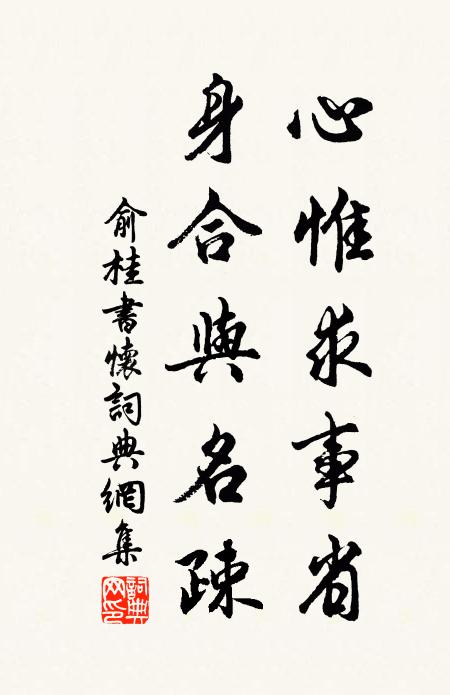 心惟求事省
身合與名疎
俞桂書懷詞典網集
詞典網印